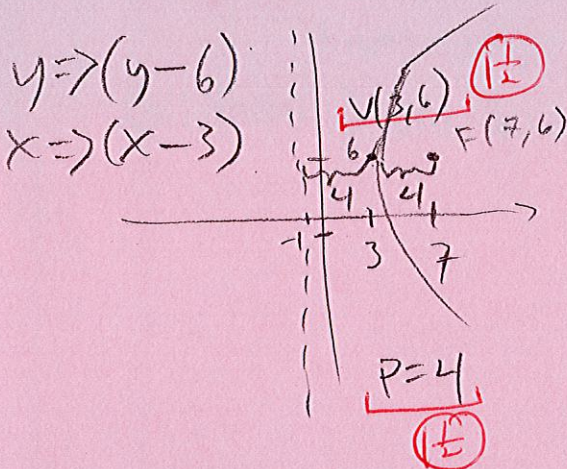 y=>(y-6)
x=>(x-3)
V(3,6)
1½
F(7,6)
6
4
4
-1
3
7
P=4
1½